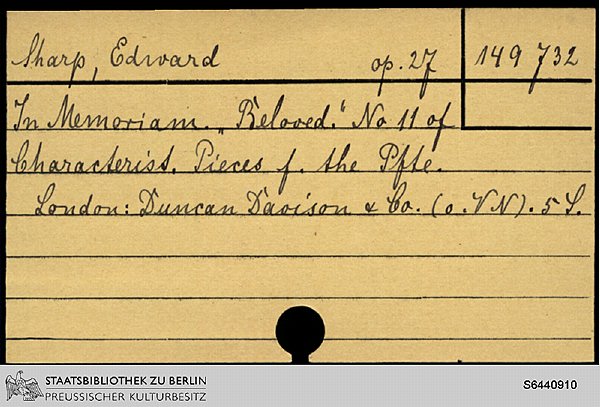 Sharp, Edward op. 27 149 732
In Memoriam. „Beloved." No 11 of
Characterist. Pieces f. the Pfte.
London: Duncan Davison & Co. (o. VN). 5 S.
STAATSBIBLIOTHEK ZU BERLIN
PREUSSISCHER KULTURBESITZ
S6440910